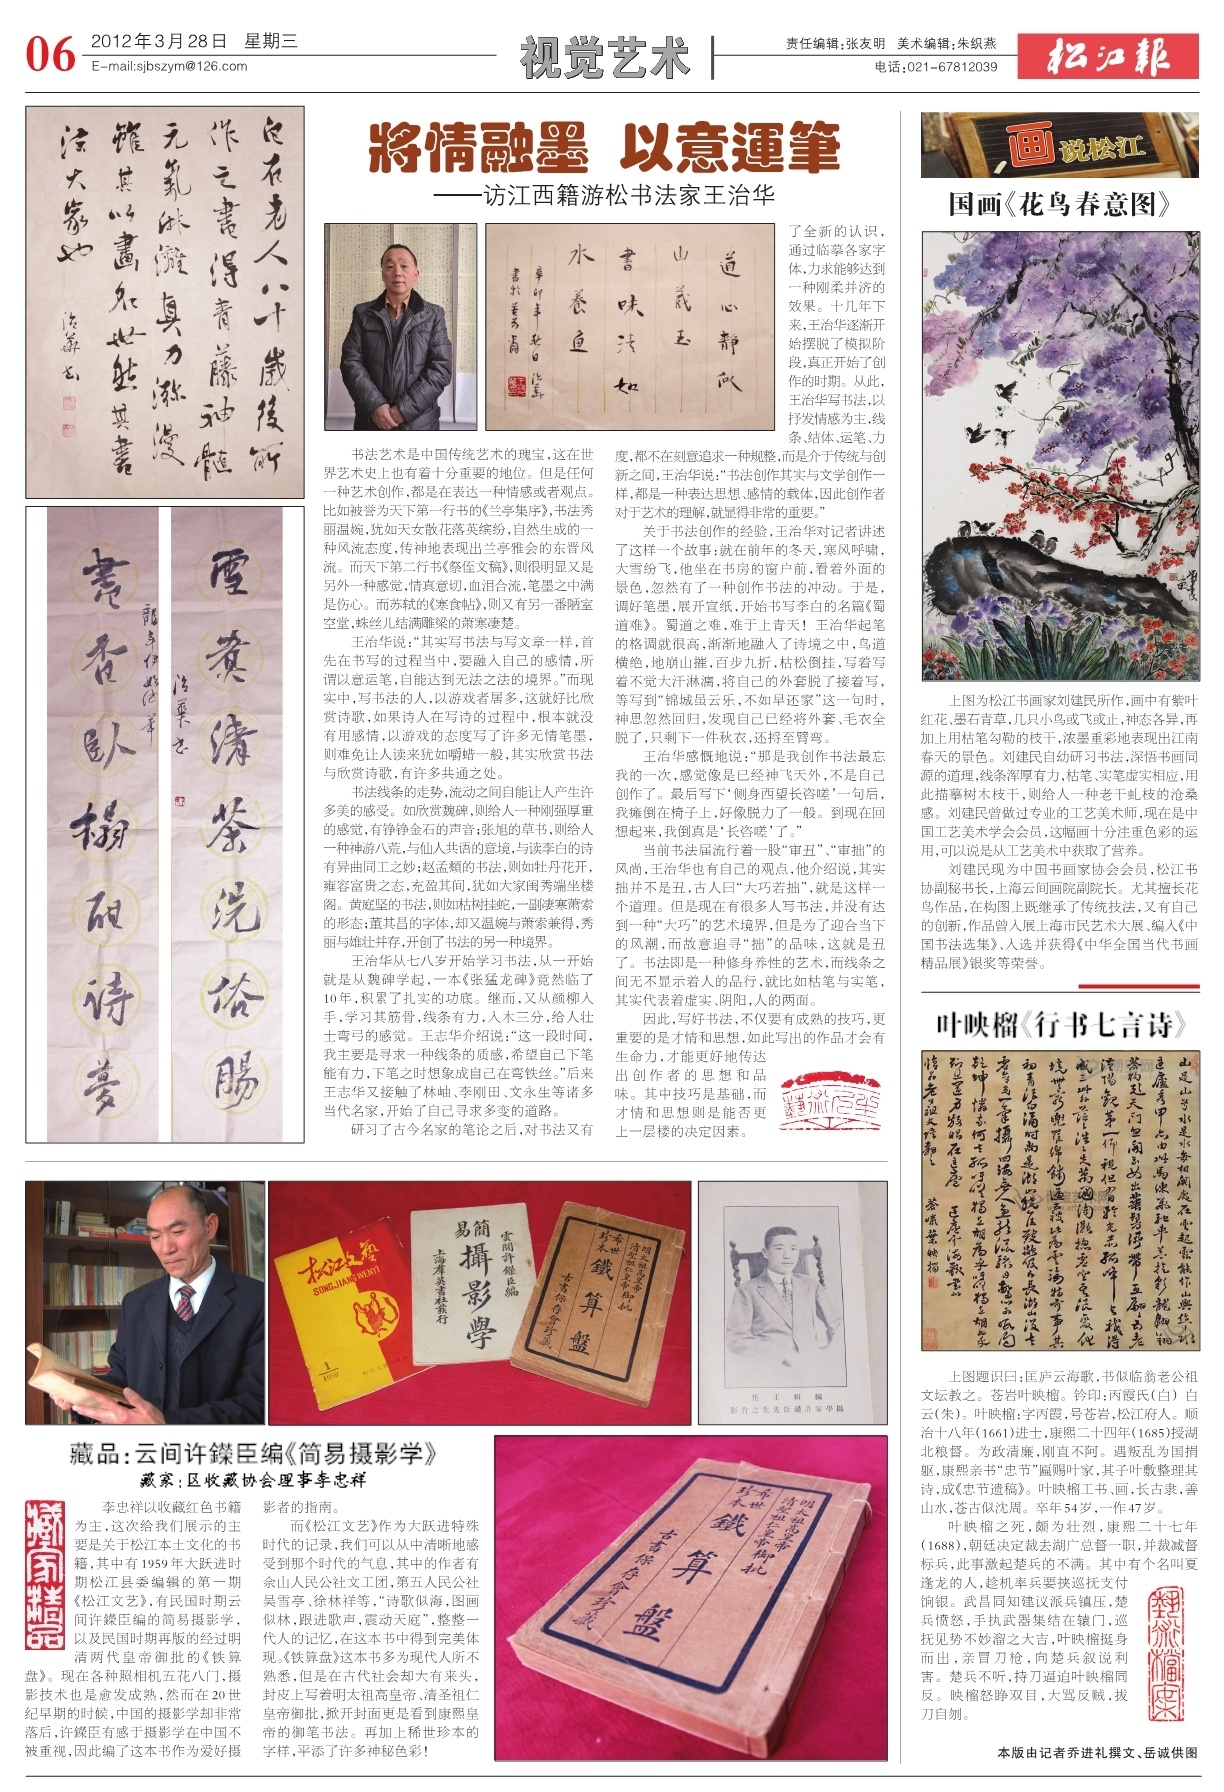 06
2012年3月28日 星期三
E-mail:sjbszym@126.com
视觉艺术
责任编辑:张友明 美术编辑:朱织燕
电话:021-67812039
松江報
白石老人八十歲後所
作之書得青藤神髓
元氣淋漓真力瀰漫
雖其以畫名世然其書
法大家也
將情融墨 以意運筆
——访江西籍游松书法家王治华
道心静似
山藏玉
書味清如
水養魚
书法艺术是中国传统艺术的瑰宝,这在世
界艺术史上也有着十分重要的地位。但是任何
一种艺术创作,都是在表达一种情感或者观点。
比如被誉为天下第一行书的《兰亭集序》,书法秀
丽温婉,犹如天女散花落英缤纷,自然生成的一
种风流态度,传神地表现出兰亭雅会的东晋风
流。而天下第二行书《祭侄文稿》,则很明显又是
另外一种感觉,情真意切,血泪合流,笔墨之中满
是伤心。而苏轼的《寒食帖》,则又有另一番陋室
空堂,蛛丝儿结满雕梁的萧寒凄楚。
王治华说:“其实写书法与写文章一样,首
先在书写的过程当中,要融入自己的感情,所
谓以意运笔,自能达到无法之法的境界。”而现
实中,写书法的人,以游戏者居多,这就好比欣
赏诗歌,如果诗人在写诗的过程中,根本就没
有用感情,以游戏的态度写了许多无情笔墨,
则难免让人读来犹如嚼蜡一般,其实欣赏书法
与欣赏诗歌,有许多共通之处。
书法线条的走势,流动之间自能让人产生许
多美的感受。如欣赏魏碑,则给人一种刚强厚重
的感觉,有铮铮金石的声音;张旭的草书,则给人
一种神游八荒,与仙人共语的意境,与读李白的诗
有异曲同工之妙;赵孟頫的书法,则如牡丹花开,
雍容富贵之态,充盈其间,犹如大家闺秀端坐楼
阁。黄庭坚的书法,则如枯树挂蛇,一副凄寒萧索
的形态;董其昌的字体,却又温婉与萧索兼得,秀
丽与雄壮并存,开创了书法的另一种境界。
王治华从七八岁开始学习书法,从一开始
就是从魏碑学起,一本《张猛龙碑》竟然临了
10年,积累了扎实的功底。继而,又从颜柳入
手,学习其筋骨,线条有力,入木三分,给人壮
士弯弓的感觉。王志华介绍说:“这一段时间,
我主要是寻求一种线条的质感,希望自己下笔
能有力,下笔之时想象成自己在弯铁丝。”后来
王志华又接触了林岫、李刚田、文永生等诸多
当代名家,开始了自己寻求多变的道路。
研习了古今名家的笔论之后,对书法又有
了全新的认识,
通过临摹各家字
体,力求能够达到
一种刚柔并济的
效果。十几年下
来,王治华逐渐开
始摆脱了模拟阶
段,真正开始了创
作的时期。从此,
王治华写书法,以
抒发情感为主,线
条、结体、运笔、力
度,都不在刻意追求一种规整,而是介于传统与创
新之间,王治华说:“书法创作其实与文学创作一
样,都是一种表达思想、感情的载体,因此创作者
对于艺术的理解,就显得非常的重要。”
关于书法创作的经验,王治华对记者讲述
了这样一个故事:就在前年的冬天,寒风呼啸,
大雪纷飞,他坐在书房的窗户前,看着外面的
景色,忽然有了一种创作书法的冲动。于是,
调好笔墨,展开宣纸,开始书写李白的名篇《蜀
道难》。蜀道之难,难于上青天!王治华起笔
的格调就很高,渐渐地融入了诗境之中,鸟道
横绝,地崩山摧,百步九折,枯松倒挂,写着写
着不觉大汗淋漓,将自己的外套脱了接着写,
等写到“锦城虽云乐,不如早还家”这一句时,
神思忽然回归,发现自己已经将外套、毛衣全
脱了,只剩下一件秋衣,还捋至臂弯。
王治华感慨地说:“那是我创作书法最忘
我的一次,感觉像是已经神飞天外,不是自己
创作了。最后写下‘侧身西望长咨嗟’一句后,
我瘫倒在椅子上,好像脱力了一般。到现在回
想起来,我倒真是‘长咨嗟’了。”
当前书法届流行着一股“审丑”、“审拙”的
风尚,王治华也有自己的观点,他介绍说,其实
拙并不是丑,古人曰“大巧若拙”,就是这样一
个道理。但是现在有很多人写书法,并没有达
到一种“大巧”的艺术境界,但是为了迎合当下
的风潮,而故意追寻“拙”的品味,这就是丑
了。书法即是一种修身养性的艺术,而线条之
间无不显示着人的品行,就比如枯笔与实笔,
其实代表着虚实、阴阳,人的两面。
因此,写好书法,不仅要有成熟的技巧,更
重要的是才情和思想,如此写出的作品才会有
生命力,才能更好地传达
出创作者的思想和品
味。其中技巧是基础,而
才情和思想则是能否更
上一层楼的决定因素。
雪煮清茶洗俗腸
書香臥榻甜詩夢
画说松江
国画《花鸟春意图》
上图为松江书画家刘建民所作,画中有紫叶
红花、墨石青草,几只小鸟或飞或止,神态各异,再
加上用枯笔勾勒的枝干,浓墨重彩地表现出江南
春天的景色。刘建民自幼研习书法,深悟书画同
源的道理,线条浑厚有力,枯笔、实笔虚实相应,用
此描摹树木枝干,则给人一种老干虬枝的沧桑
感。刘建民曾做过专业的工艺美术师,现在是中
国工艺美术学会会员,这幅画十分注重色彩的运
用,可以说是从工艺美术中获取了营养。
刘建民现为中国书画家协会会员,松江书
协副秘书长,上海云间画院副院长。尤其擅长花
鸟作品,在构图上既继承了传统技法,又有自己
的创新,作品曾入展上海市民艺术大展、编入《中
国书法选集》、入选并获得《中华全国当代书画
精品展》银奖等荣誉。
叶映榴《行书七言诗》
上图题识曰:匡庐云海歌,书似临翁老公祖
文坛教之。苍岩叶映榴。钤印:丙霞氏(白) 白
云(朱)。叶映榴:字丙霞,号苍岩,松江府人。顺
治十八年(1661)进士,康熙二十四年(1685)授湖
北粮督。为政清廉,刚直不阿。遇叛乱为国捐
躯,康熙亲书“忠节”匾赐叶家,其子叶敷整理其
诗,成《忠节遗稿》。叶映榴工书、画,长古隶,善
山水,苍古似沈周。卒年54岁,一作47岁。
叶映榴之死,颇为壮烈,康熙二十七年
(1688),朝廷决定裁去湖广总督一职,并裁减督
标兵,此事激起楚兵的不满。其中有个名叫夏
逢龙的人,趁机率兵要挟巡抚支付
饷银。武昌同知建议派兵镇压,楚
兵愤怒,手执武器集结在辕门,巡
抚见势不妙溜之大吉,叶映榴挺身
而出,亲冒刀枪,向楚兵叙说利
害。楚兵不听,持刀逼迫叶映榴同
反。映榴怒睁双目,大骂反贼,拔
刀自刎。
松江文艺
SONGJIANG WENYI
1
1959
雲間許鑅臣編
簡易
攝影學
上海群英書社發行
明太祖高皇帝
清聖祖仁皇帝御批
希世珍本
鐵算盤
古書保存會珍藏
藏品:云间许鑅臣编《简易摄影学》
藏家:区收藏协会理事李忠祥
藏家精品
李忠祥以收藏红色书籍
为主,这次给我们展示的主
要是关于松江本土文化的书
籍,其中有1959年大跃进时
期松江县委编辑的第一期
《松江文艺》,有民国时期云
间许鑅臣编的简易摄影学,
以及民国时期再版的经过明
清两代皇帝御批的《铁算
盘》。现在各种照相机五花八门,摄
影技术也是愈发成熟,然而在20世
纪早期的时候,中国的摄影学却非常
落后,许鑅臣有感于摄影学在中国不
被重视,因此编了这本书作为爱好摄
影者的指南。
而《松江文艺》作为大跃进特殊
时代的记录,我们可以从中清晰地感
受到那个时代的气息,其中的作者有
佘山人民公社文工团,第五人民公社
吴雪亭、徐林祥等,“诗歌似海,图画
似林,跟进歌声,震动天庭”,整整一
代人的记忆,在这本书中得到完美体
现。《铁算盘》这本书多为现代人所不
熟悉,但是在古代社会却大有来头,
封皮上写着明太祖高皇帝、清圣祖仁
皇帝御批,掀开封面更是看到康熙皇
帝的御笔书法。再加上稀世珍本的
字样,平添了许多神秘色彩!
明太祖高皇帝
清聖祖仁皇帝御批
希世珍本
鐵算盤
古書保存會珍藏
本版由记者乔进礼撰文、岳诚供图